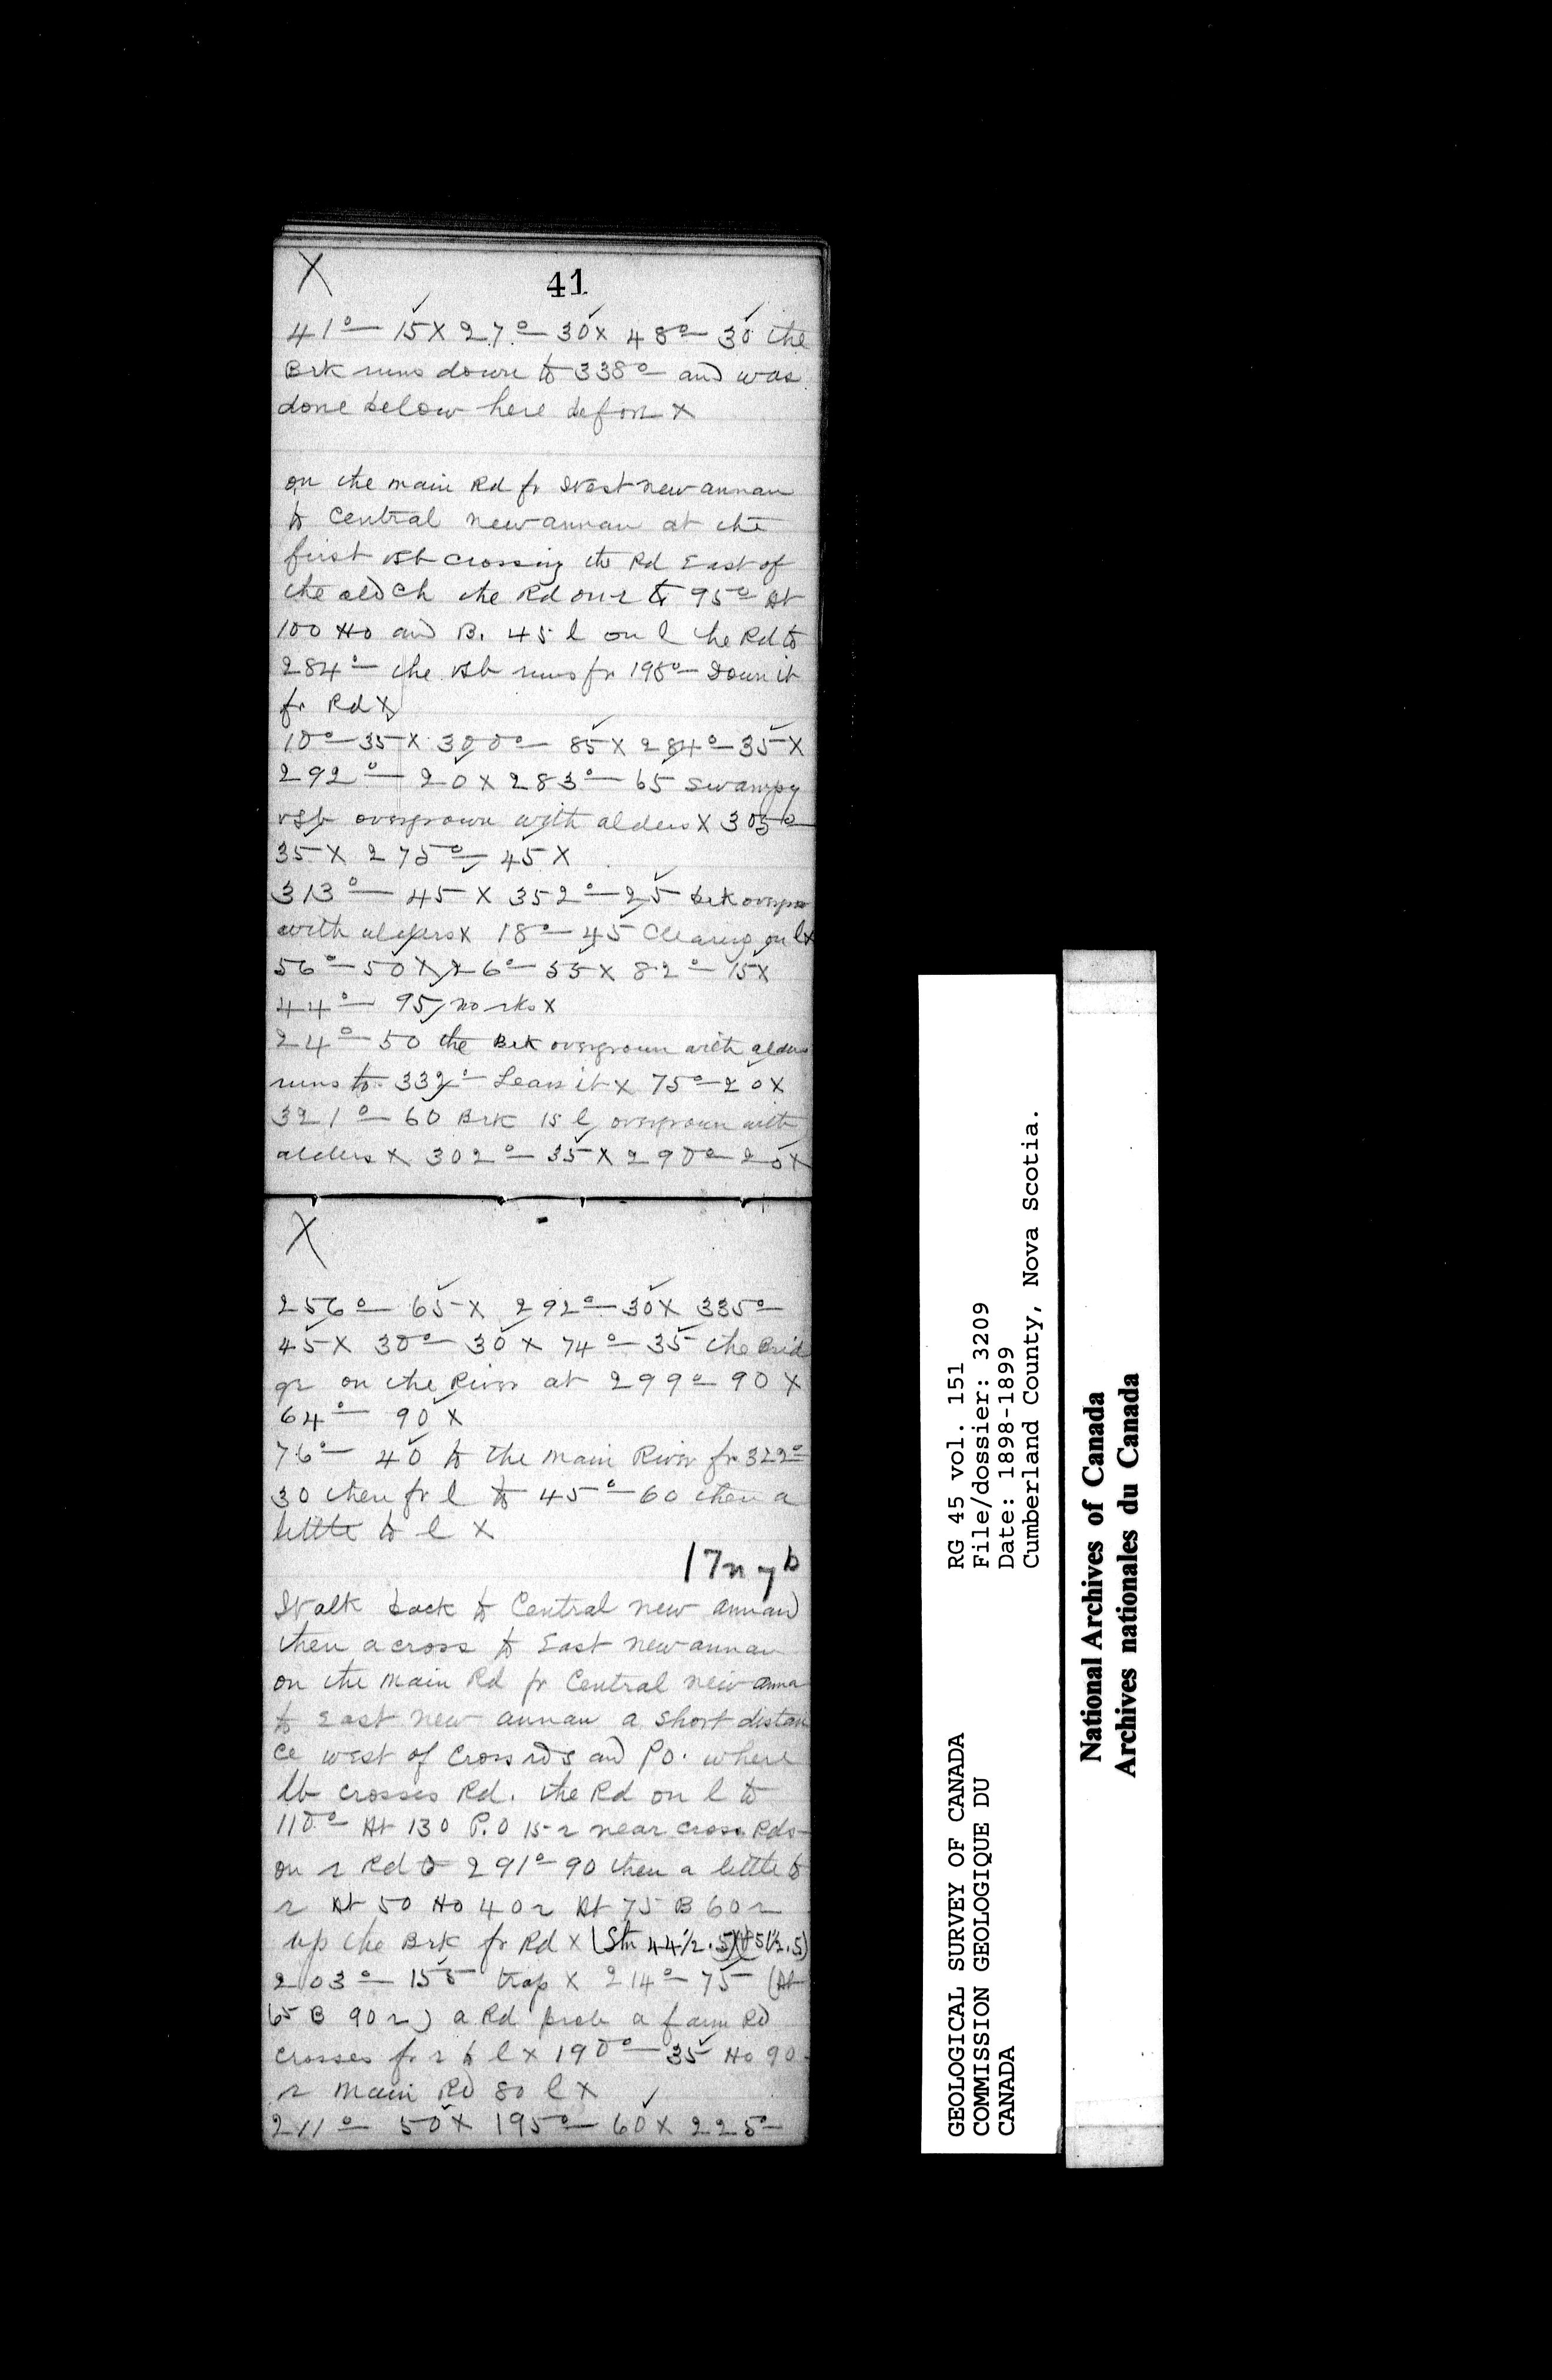 X
41
41° — 15 X 27° — 30 X 48° — 30 the
Brk runs down to 338° — and was
done below here before X
on the main Rd fr West new annan
to Central new annan at the
first vsb crossing the Rd East of
the old Ch the Rd on r to 95° — At
100 Ho and B. 45 l on l the Rd to
284° — the vsb runs fr 198° — Down it
fr Rd X
10° — 35 X 300° — 85 X 284° — 35 X
292° — 20 X 283° — 65 swampy
vsb overgrown with alders X 305° —
35 X 275° — 45 X
313° — 45 X 352° — 25 brk overgrow
with alders X 18° — 45 Clearing on l X
56° — 50 X 26° — 55 X 82° — 15 X
44° — 95 no rks X
24° — 50 the Brk overgrown with alders
runs to 332° — Leave it X 75° — 20 X
321° — 60 Brk 15 l overgrown with
alders X 302° — 35 X 290° — 25 X
X
256° — 65 X 292° — 30 X 335° —
45 X 30° — 30 X 74° — 35 the Brid
ge on the River at 299° — 90 X
64° — 90 X
76° — 40 to the main River fr 322° —
30 then fr l to 45° — 60 then a
little to l X
17n7b
Walk back to Central new annan
then across to East new annan
on the main Rd fr Central new anna
to East new annan a short distan
ce west of Cross rds and P.O. where
lb crosses Rd. the Rd on l to
110° — At 130 P.O 15 r near cross Rds —
on r Rd to 291° — 90 then a little to
r At 50 Ho 40 r At 75 B 60 r
up the Brk fr Rd X (Stn 44½.5)(51½.5)
203° — 155 trap X 214° — 75 (At
65 B 90 r) a Rd prob a farm Rd
crosses fr r to l X 190° — 35 Ho 90
r main Rd 80 l X
211° — 50 X 195° — 60 X 225° —
GEOLOGICAL SURVEY OF CANADA
COMMISSION GEOLOGIQUE DU
CANADA
RG 45 vol. 151
File/dossier: 3209
Date: 1898-1899
Cumberland County, Nova Scotia.
National Archives of Canada
Archives nationales du Canada